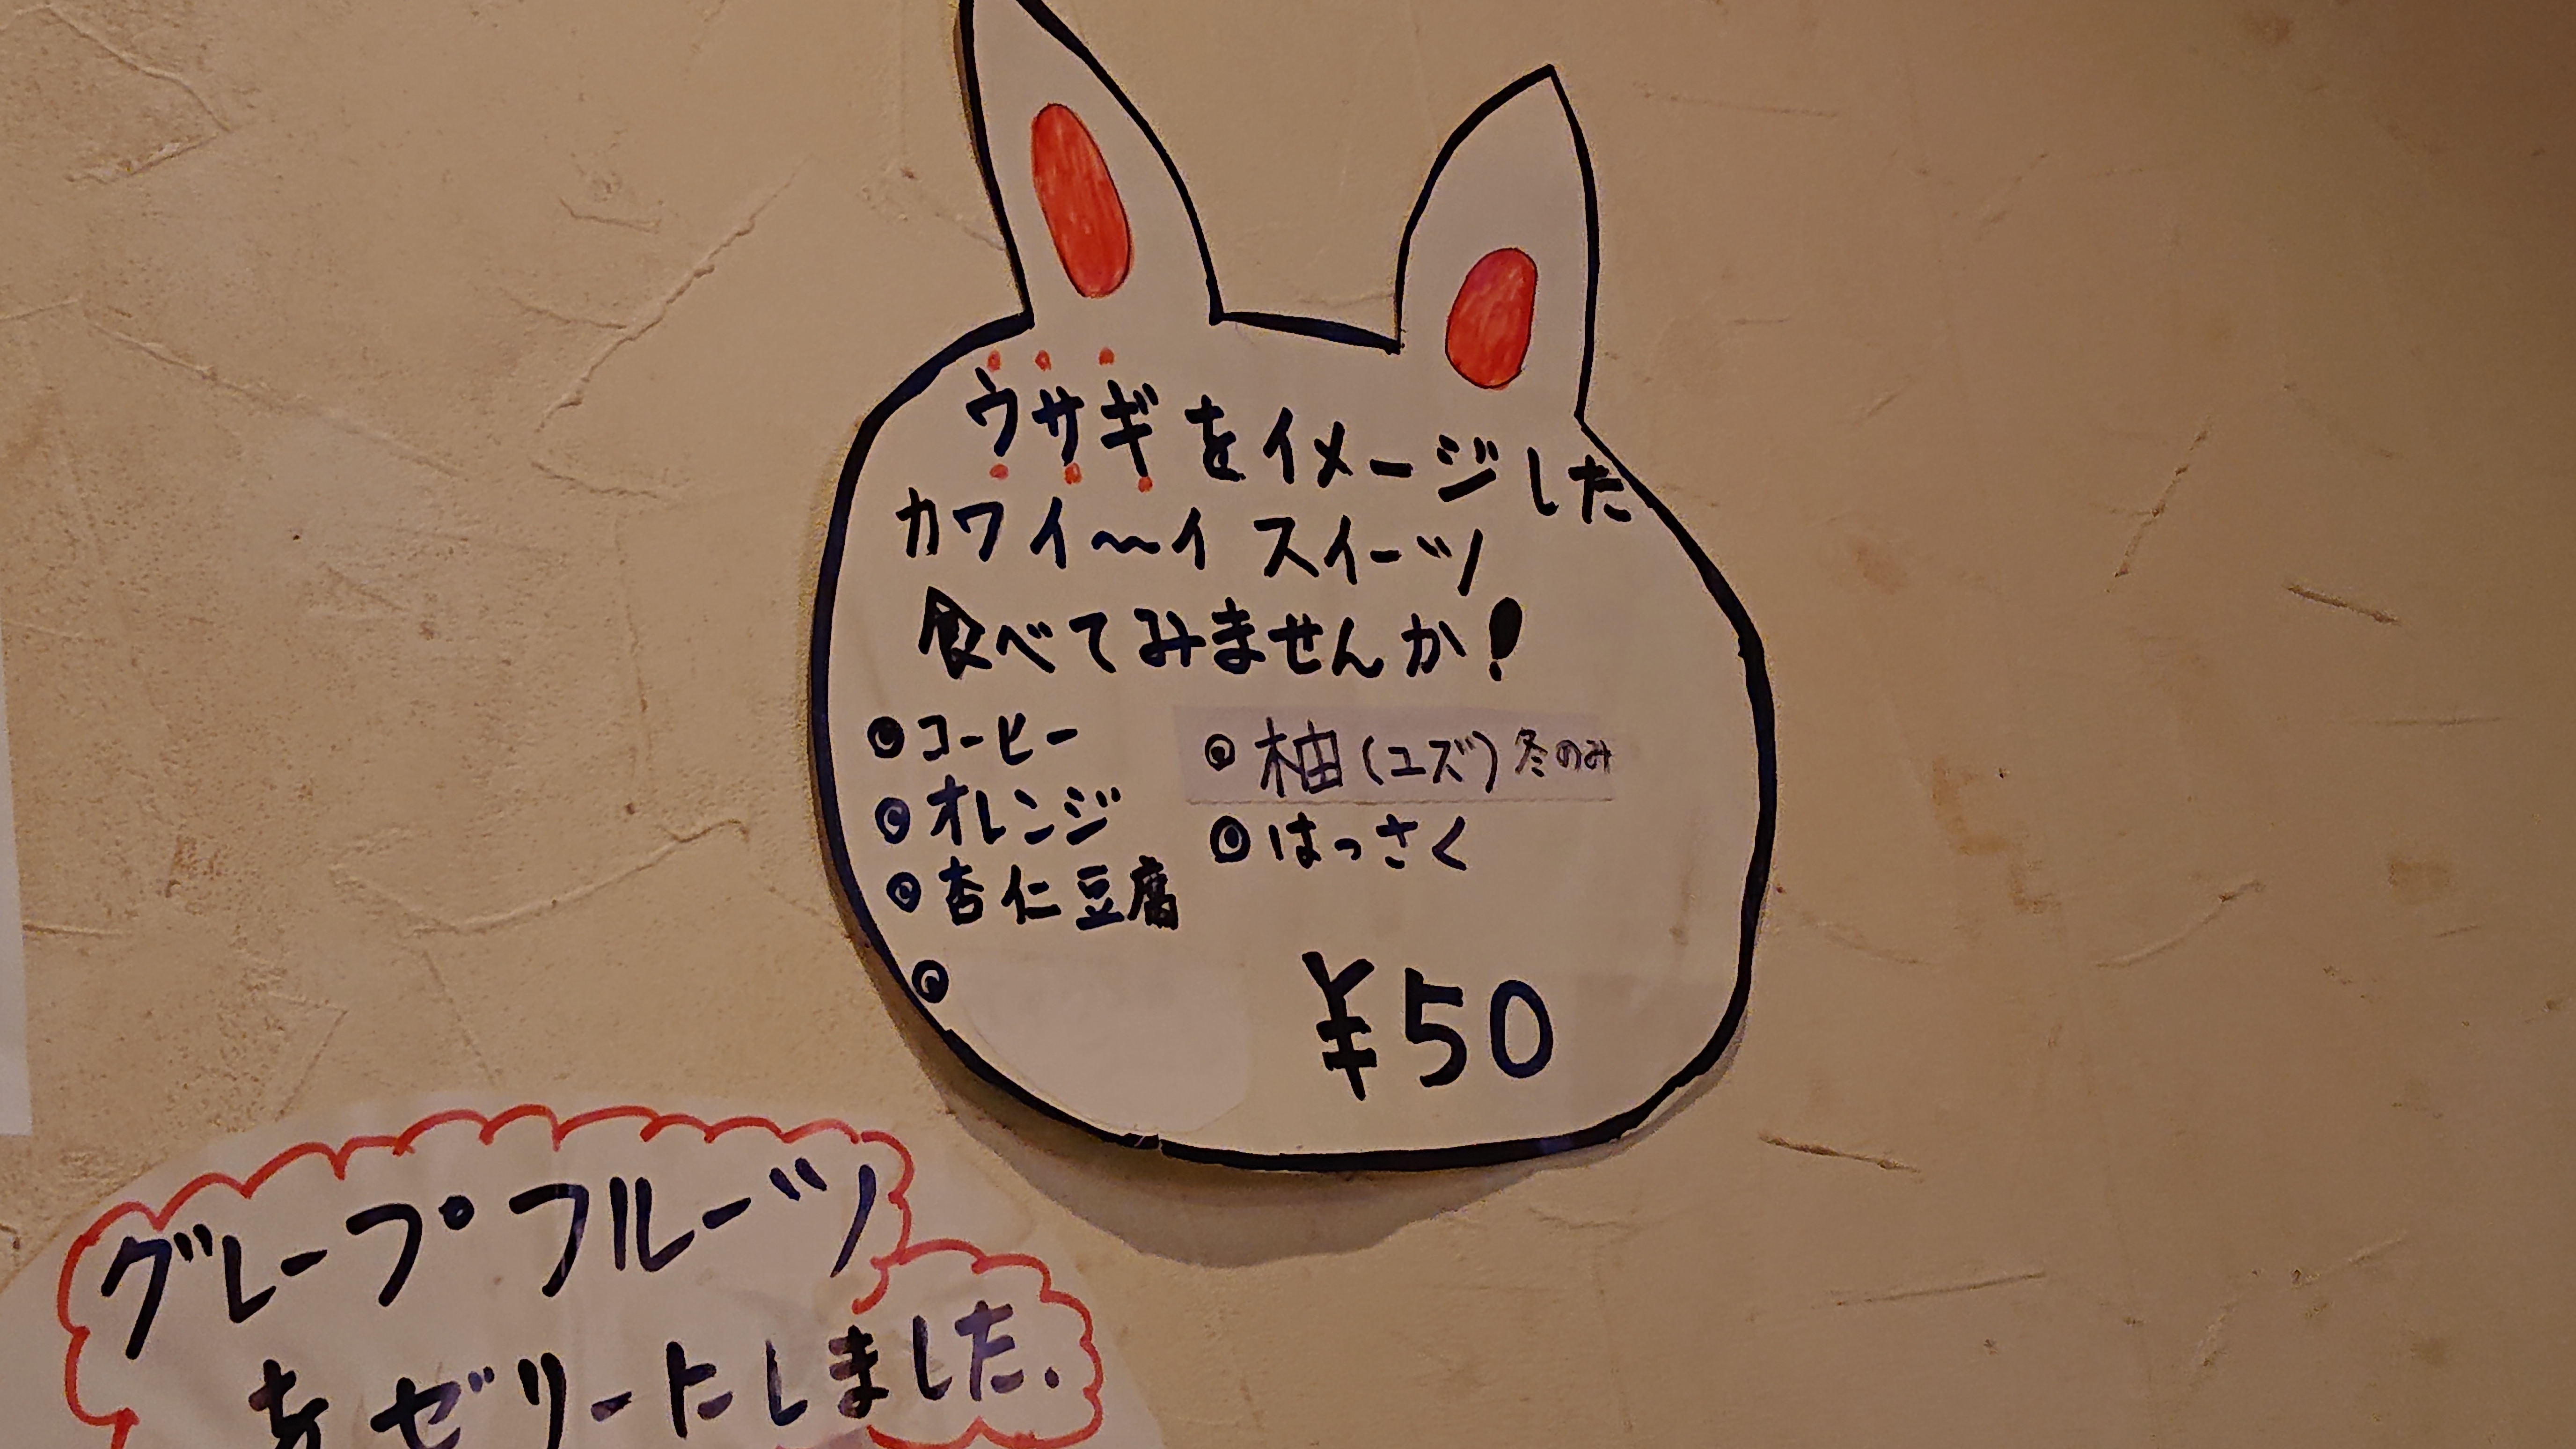 ウサギをイメージした
カワイ〜イ スイーツ
食べてみませんか!
◎コーヒー
◎オレンジ
◎杏仁豆腐
◎
◎柚(ユズ)冬のみ
◎はっさく
¥50
グレープフルーツ
をゼリーにしました.